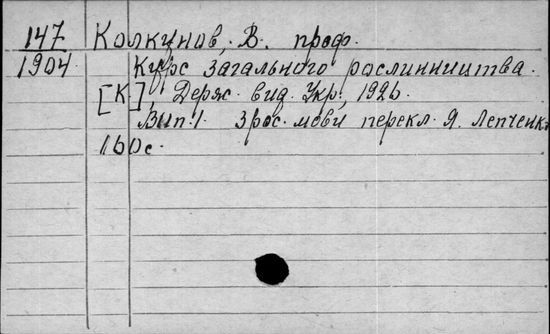 147 Колкунов, В. проф.
1904 Курс загального рослинництва.
[К], Держ. вид. Укр., 1926.
Вып. 1. З рос. мови перекл. Я. Лепченк
160 с.